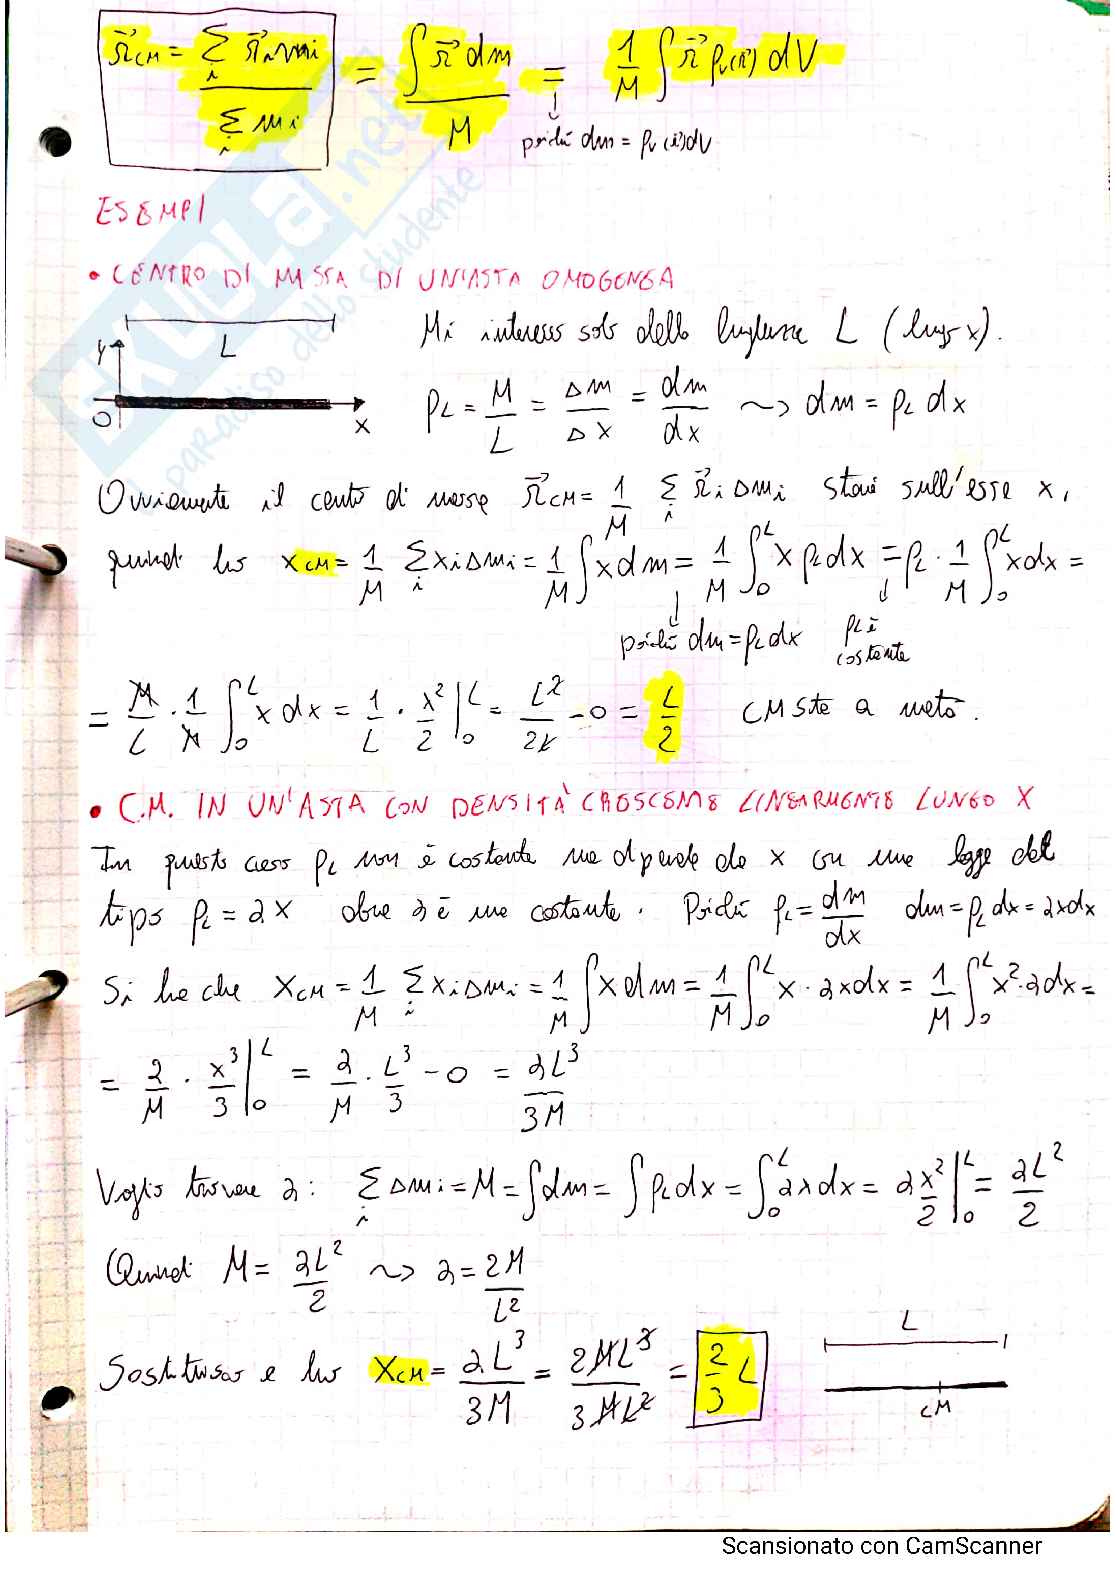 r⃗CM = Σi r⃗i mi / Σi mi = ∫ r⃗ dm / M = 1/M ∫ r⃗ ρv(r⃗) dV
poiché dm = ρv(r⃗)dV
ESEMPI
• CENTRO DI MASSA DI UN'ASTA OMOGENEA
L
Mi interesso solo della lunghezza L (lungo x).
y
O
x
ρL = M/L = Δm/Δx = dm/dx ~> dm = ρL dx
Ovviamente il centro di massa r⃗CM = 1/M Σi r⃗i Δmi starà sull'asse x,
quindi ho xCM = 1/M Σi xi Δmi = 1/M ∫ x dm = 1/M ∫0^L x ρL dx = ρL · 1/M ∫0^L x dx =
poiché dm = ρL dx
ρL è costante
= M/L · 1/M ∫0^L x dx = 1/L · x²/2 |0^L = L²/2L - 0 = L/2 CM sta a metà.
• C.M. IN UN'ASTA CON DENSITÀ CRESCENTE LINEARMENTE LUNGO X
In questo caso ρL non è costante ma dipende da x con una legge del
tipo ρL = ax dove a è una costante. Poiché ρL = dm/dx dm = ρL dx = axdx
Si ha che XCM = 1/M Σi xi Δmi = 1/M ∫ x dm = 1/M ∫0^L x · axdx = 1/M ∫0^L x² · adx =
= a/M · x³/3 |0^L = a/M · L³/3 - 0 = aL³/3M
Voglio trovare a: Σi Δmi = M = ∫dm = ∫ ρL dx = ∫0^L axdx = ax²/2 |0^L = aL²/2
Quindi M = aL²/2 ~> a = 2M/L²
L
Sostituisco e ho XCM = aL³/3M = 2ML³/3ML² = 2/3 L
CM
SKUOLA.net
il paradiso dello studente
Scansionato con CamScanner